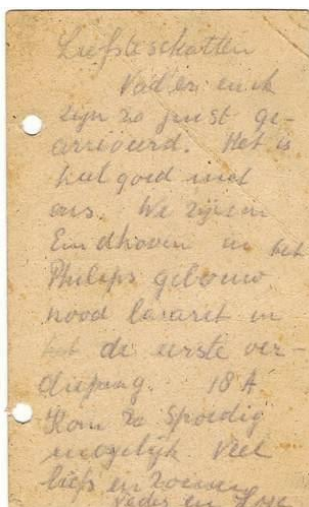 Liefste schatten
Vader en ik
zijn zo juist ge-
arriveerd. Het is
heel goed met
ons. We zijn in
Eindhoven in het
Philips gebouw
nood lazaret in
het de eerste ver-
dieping. 18 A
Kom zo spoedig
mogelijk Veel
liefs en zoenen
Vader en